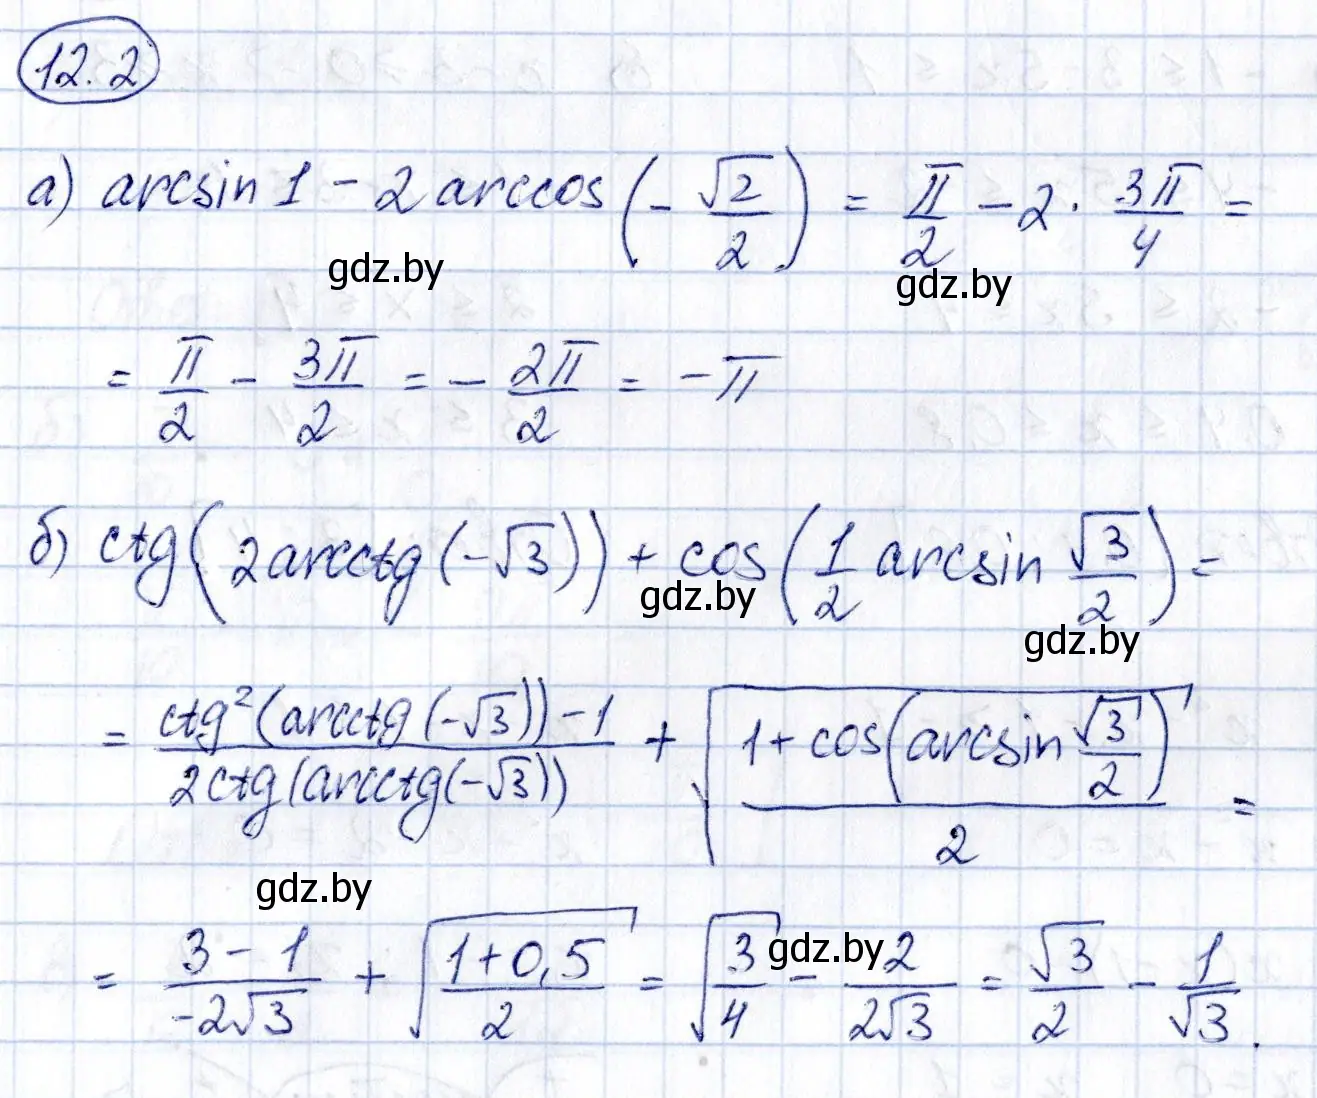 12.2
а) arcsin 1 - 2 arccos (- √2/2) = π/2 - 2 · 3π/4 =
gdz.by
gdz.by
= π/2 - 3π/2 = - 2π/2 = - π
б) ctg (2 arcctg (-√3)) + cos (1/2 arcsin √3/2) =
gdz.by
gdz.by
= (ctg² (arcctg (-√3)) - 1)/(2 ctg (arcctg (-√3))) + √((1 + cos (arcsin √3/2))/2) =
gdz.by
= (3 - 1)/(-2√3) + √((1 + 0,5)/2) = √(3/4) - 2/(2√3) = √3/2 - 1/√3.
gdz.by